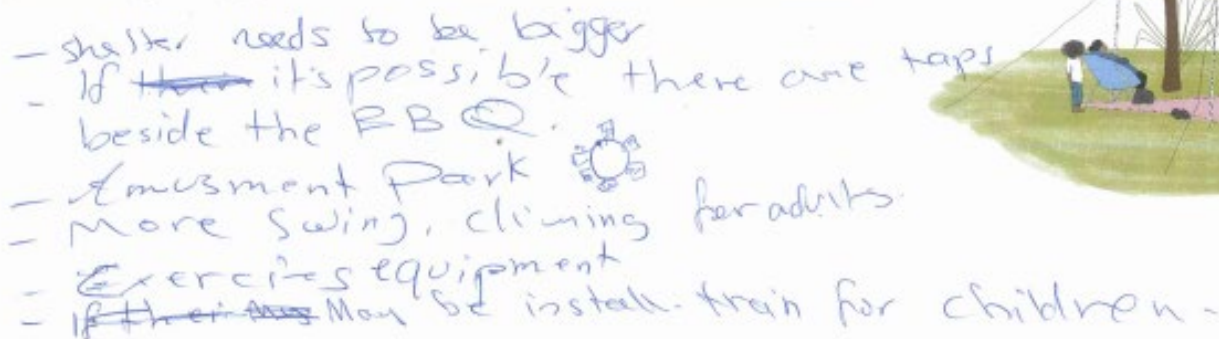 - shelter needs to be bigger
- If it's possible there are taps
beside the BBQ.
- Amusment Park
- More Swing, climing for adults.
- Exercies equipment
- May be install train for children.